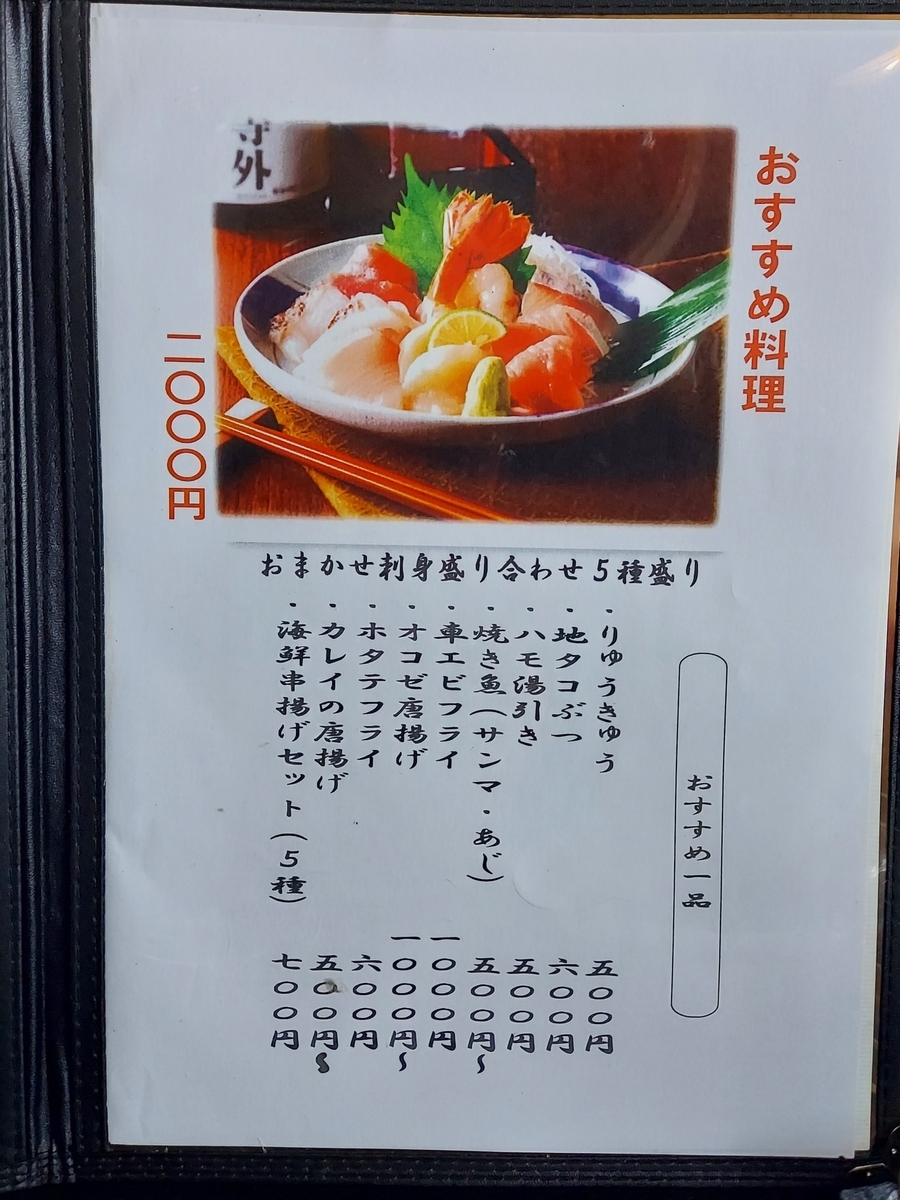 おすすめ料理
寺外
二〇〇〇円
おまかせ刺身盛り合わせ5種盛り
おすすめ一品
・りゅうきゅう 五〇〇円
・地タコぶつ 六〇〇円
・ハモ湯引き 五〇〇円
・焼き魚(サンマ・あじ) 五〇〇円~
・車エビフライ 一〇〇〇円
・オコゼ唐揚げ 一〇〇〇円~
・ホタテフライ 六〇〇円
・カレイの唐揚げ 五〇〇円~
・海鮮串揚げセット(5種) 七〇〇円